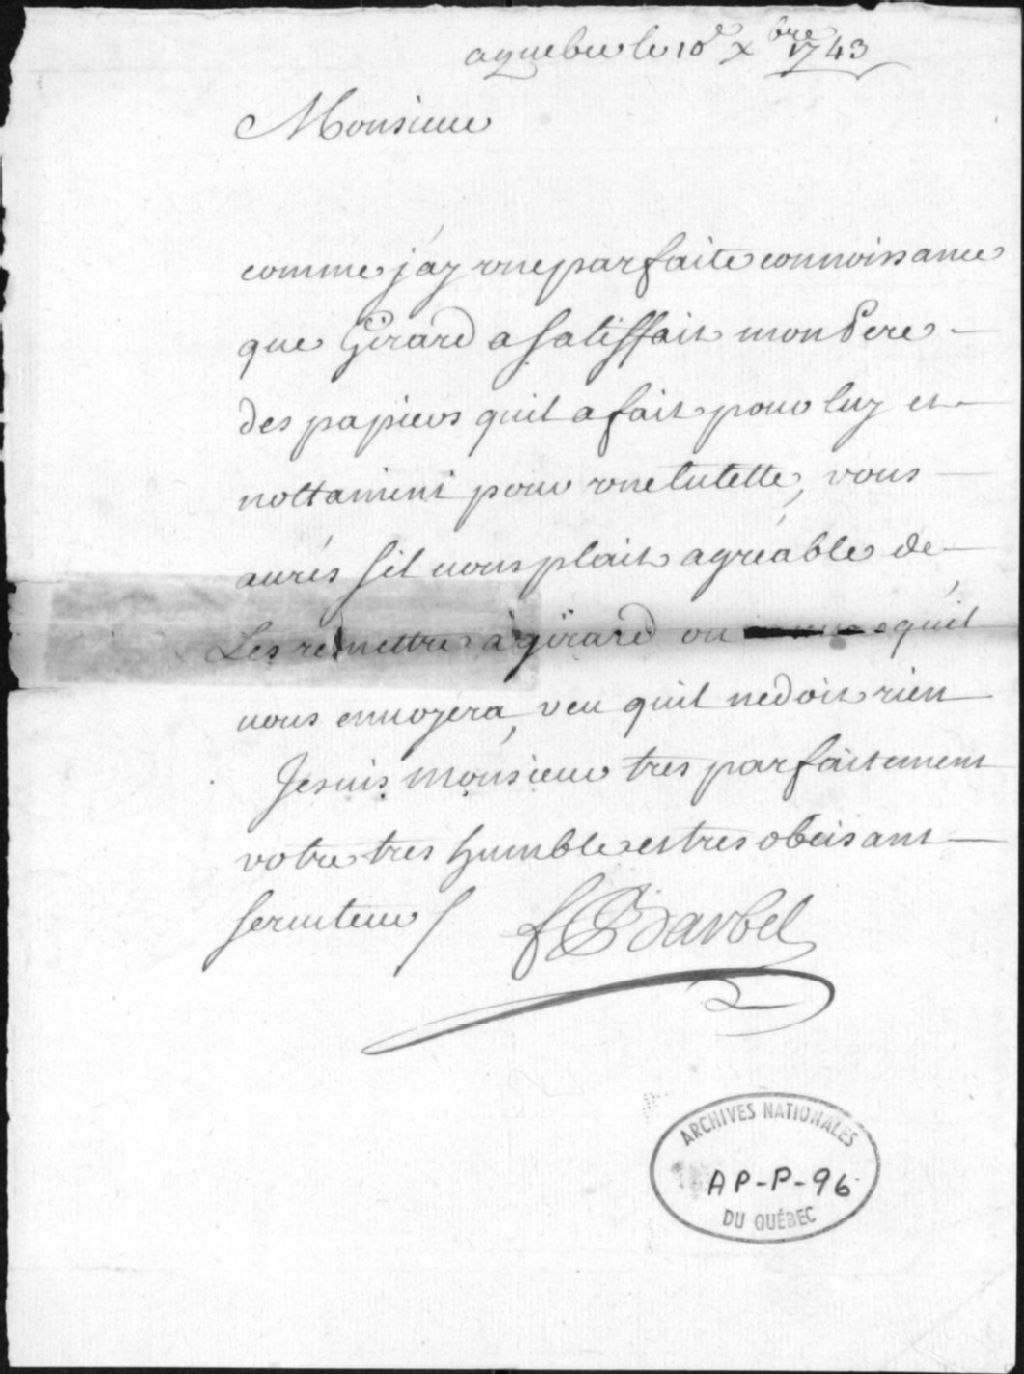 aquebec le 10e xbre 1743
Monsieur
comme j'ay une parfaite connoissance
que Girard a satisffait mon Pere
des papiers quil a fait pour luy et
nottament pour une tutelle, vous
aurés sil vous plait agréable de
Les remettre à girard ou quil
vous envoyera, veu quil ne doit rien
Je suis Monsieur tres parfaitement
votre tres humble et tres obeisant
serviteur / f Barbel
ARCHIVES NATIONALES
AP-P-96
DU QUÉBEC